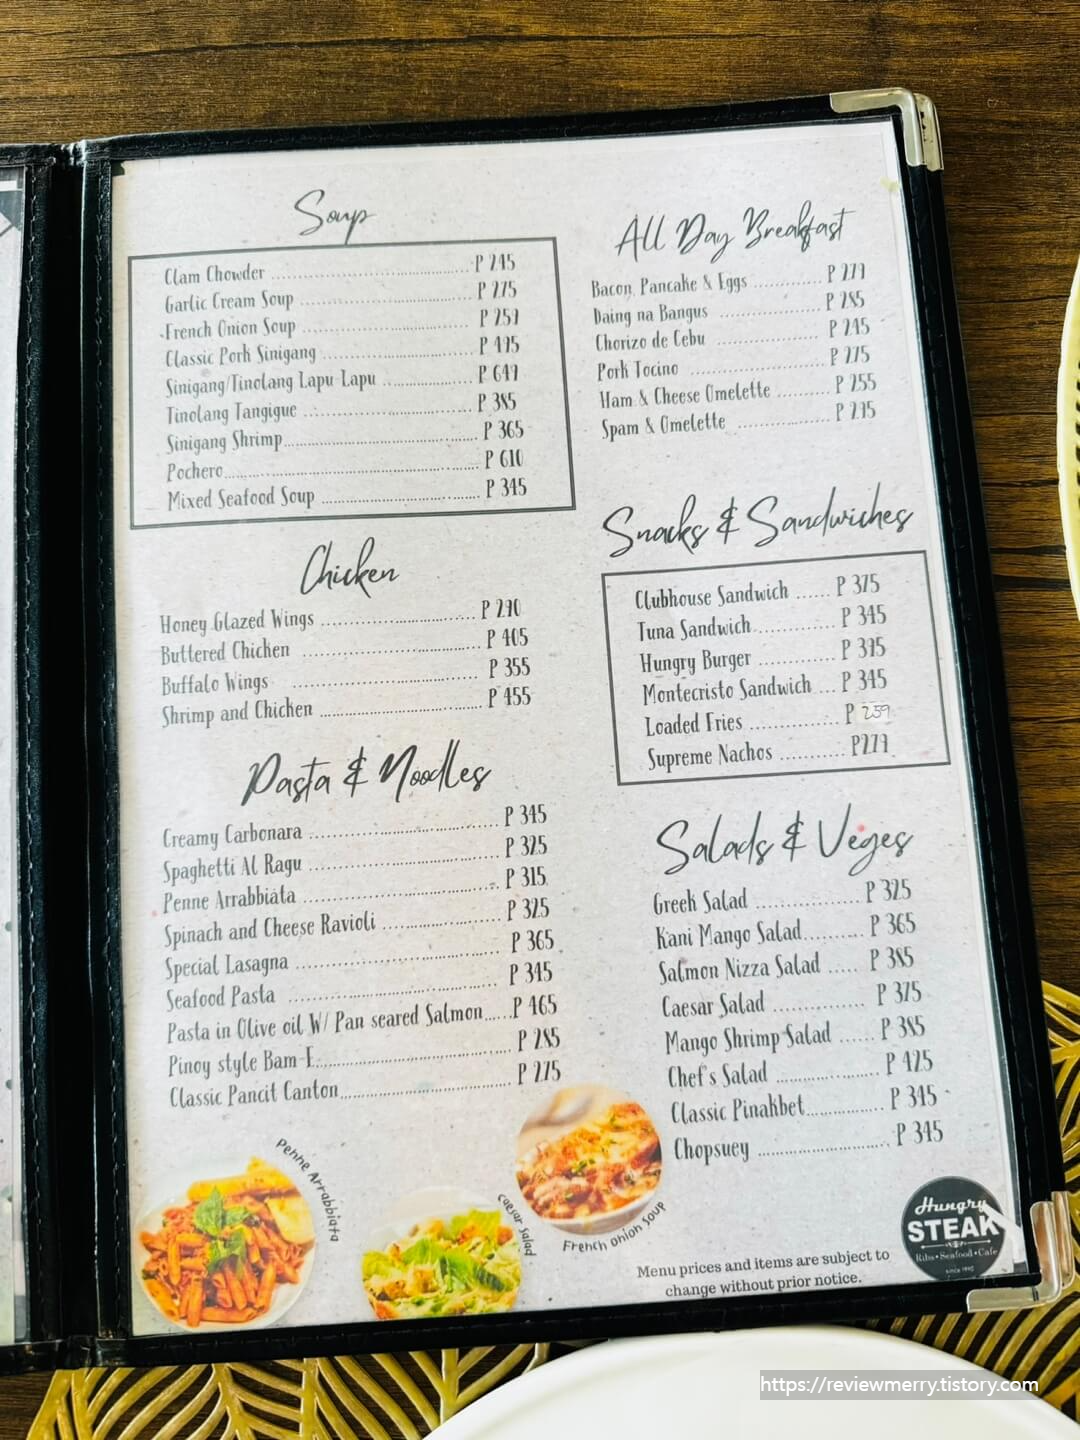 Soup
Clam Chowder P 245
Garlic Cream Soup P 275
French Onion Soup P 259
Classic Pork Sinigang P 495
Sinigang/Tinolang Lapu-Lapu P 649
Tinolang Tangigue P 385
Sinigang Shrimp P 365
Pochero P 610
Mixed Seafood Soup P 345
Chicken
Honey Glazed Wings P 290
Buttered Chicken P 405
Buffalo Wings P 355
Shrimp and Chicken P 455
Pasta & Noodles
Creamy Carbonara P 345
Spaghetti Al Ragu P 325
Penne Arrabbiata P 315
Spinach and Cheese Ravioli P 325
Special Lasagna P 365
Seafood Pasta P 345
Pasta in Olive oil W/ Pan seared Salmon P 465
Pinoy style Bam-I P 285
Classic Pancit Canton P 275
Penne Arrabbiata
Caesar Salad
French Onion Soup
All Day Breakfast
Bacon, Pancake & Eggs P 279
Daing na Bangus P 285
Chorizo de Cebu P 245
Pork Tocino P 275
Ham & Cheese Omelette P 255
Spam & Omelette P 295
Snacks & Sandwiches
Clubhouse Sandwich P 375
Tuna Sandwich P 345
Hungry Burger P 395
Montecristo Sandwich P 345
Loaded Fries P 259
Supreme Nachos P279
Salads & Veges
Greek Salad P 325
Kani Mango Salad P 365
Salmon Nizza Salad P 385
Caesar Salad P 375
Mango Shrimp Salad P 385
Chef's Salad P 425
Classic Pinakbet P 345
Chopsuey P 345
Menu prices and items are subject to
change without prior notice.
Hungry
STEAK
Ribs • Seafood • Cafe
https://reviewmerry.tistory.com